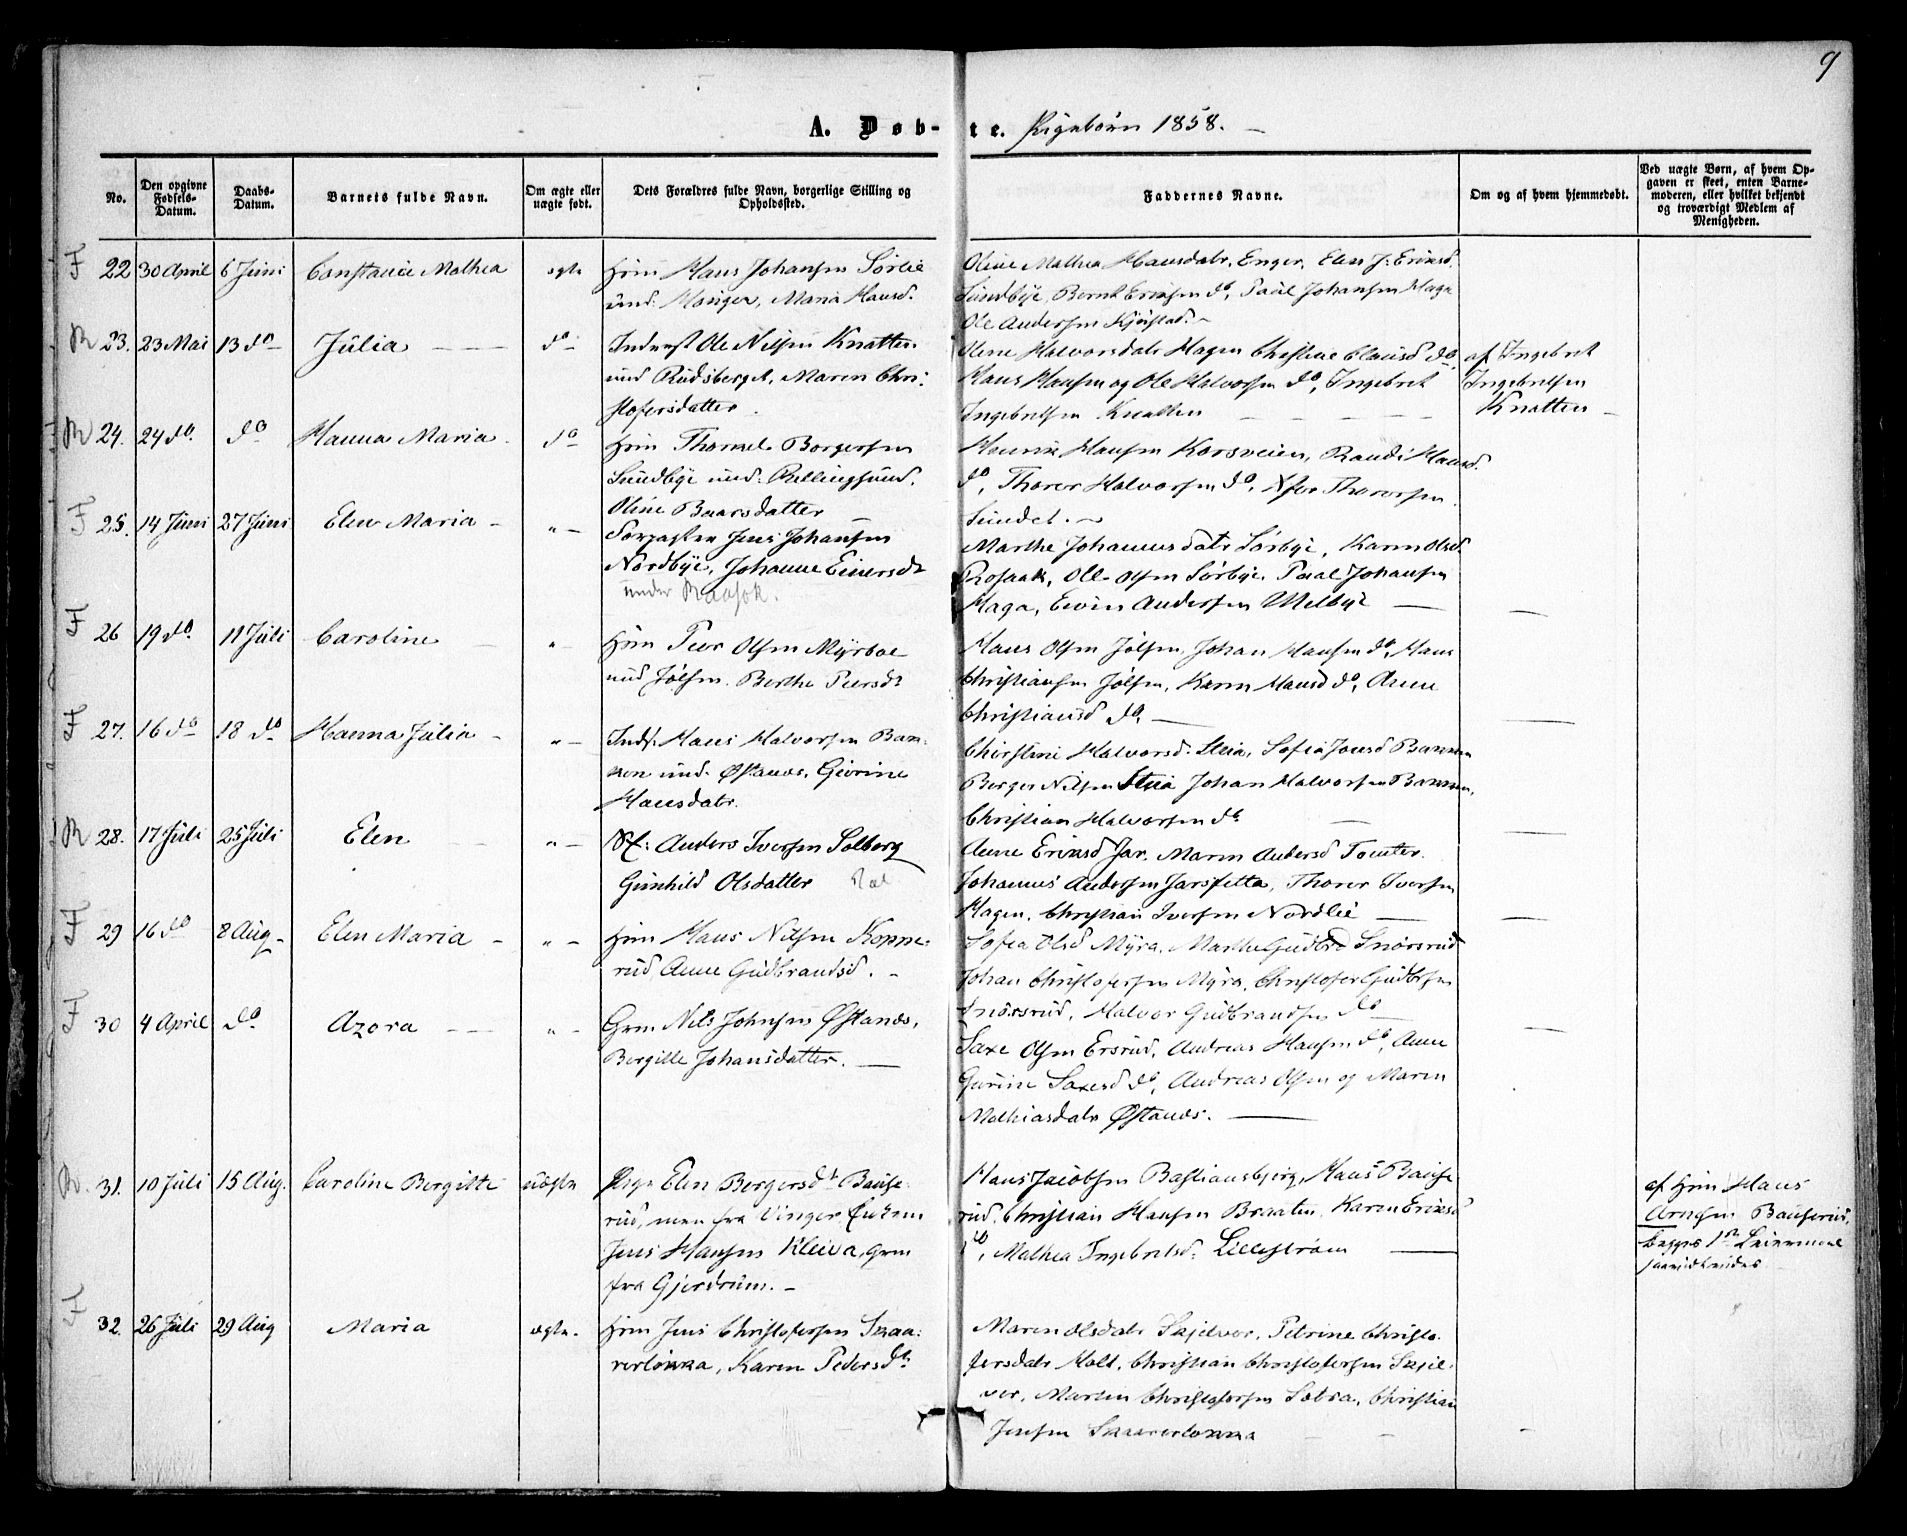 9
A. Døb-te. Pigebørn 1858. –
No.
Den opgivne Fødsels-Datum.
Daabs-Datum.
Barnets fulde Navn.
Om ægte eller uægte født.
Dets Forældres fulde Navn, borgerlige Stilling og Opholdssted.
Faddernes Navne.
Om og af hvem hjemmedøbt.
Ved uægte Børn, af hvem Opgaven er skeet, enten Barnemoderen, eller hvilket bekjendt og troværdigt Medlem af Menigheden.
F 22 30 April 6 Juni Constance Mathea ægte
Hans Johansen Sørlie
und: Hanger, Maria Hansd.
Oline Mathea Hansdatr. Enger, Elen J. Eriksd.
Sundbye, Bernt Eriksen do, Paul Johansen Haga
Ole Andersen Kjølstad. –
R 23. 23 Mai 13 do Julia – do
Inderst Ole Nilsen Knatten
und Rudsberget, Maren Chri-
stofersdatter.
Olene Halvorsdatr Hagen Christine Clausd do,
Hans Hansen og Ole Halvorsen do, Ingebret
Ingebretsen Knatten –
af Ingebret
Ingebretsen
Knatten –
R 24. 24 do. do Hanna Maria do
Thorvel Borgersen
Sundbye und: Rellingsund.
Oline Baarsdatter
Henrik Hansen Korsveien, Randi Hansd.
do, Thorer Halvorsen do, Xfer Thorersen
Sundet. –
F 25. 14 Juni 27 Juni Elen Maria – " –
Jens Johansen
Nordbye, Johanne Einersdr
under Raasok.
Marthe Johannesdatr Sørbye, Karen Olsd.
Ole Olsen Sørbye, Paal Johansen
Haga, Even Andersen Melbye –
F 26 19 do. 11 Juli Caroline " –
Peer Olsen Myrboe
und Jølsen. Berthe Peersdr
Hans Olsen Jølsen, Johan Hansen do, Hans
Christiansen Jølsen, Karen Hansd do, Anne
Christiansd do. –
F 27. 16 do 18 do Hanna Julia – " –
Inds. Hans Halvorsen Bak-
ken und. Østanes, Gurine
Hansdatr.
Christine Halvorsd. Stria, Sofia Jensd Bakken
Berger Nilsen Stria Johan Halvorsen Bakken,
Christian Halvorsen do. –
R 28. 17 Juli 25 Juli Elen " –
Anders Iversen Solberg
Gunhild Olsdatter
Anne Eriksd Jar. Maren Andersd Tomter.
Johannes Andersen Jarsfetta, Thorer Iversen
Hagen, Christian Iversen Nordlie –
F 29 16 do 8 Aug. Elen Maria – " –
Hans Nilsen Koppe-
rud, Anne Gudbrandsd. –
Sofia Olsd Myra, Marthe Gudbrd Snørsrud
Johan Christofersen Myra, Christofer Gudbrsen
Snørsrud, Halvor Gudbrandsen do
F 30 4 April do. Azora – " –
Grm. Nils Johnsen Østanes,
Bergitte Johansdatter. –
Saxe Olsen Ersrud, Andreas Hansen do, Anne
Gurine Saxesd do, Andreas Olsen og Maren
Mathiasdatr Østanes. –
R. 31. 10 Juli 15 Aug. Caroline Bergitte uægte
Pige Elen Bergersdt Bause-
rud, men fra Vinger,
Jens Hansen Kleiva, Grm
fra Gjerdrum. –
Hans Jacobsen Bastiansbjerg, Hans Bause
rud. Christian Hansen Braaten, Karen Eriksd
do, Mathea Ingebretsd. Lillestrøm –
af Hans
Arnesen Bauserud,
begges 1ste Leiermaal
F 32. 26 Juli 29 Aug Maria ægte.
Jens Christofersen Skaa-
rerløkka, Karen Pedersdr.
Maren Olsdatr Skjelver, Petrine Christo-
fersdatr Holt, Christian Christofersen Skjel-
ver, Morten Christofersen Solvia, Christian
Jensen Skaarerløkka